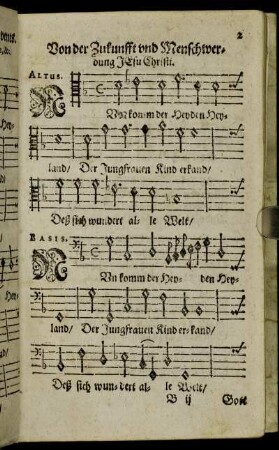 2
Von der Zukunfft vnd Menschwer-
dung JEsu Christi.
ALTUS.
NVn komm der Heyden Hey-
land/ Der Jungfrauen Kind erkand/
Deß sich wundert al- le Welt/
BASIS.
NUn komm der Hey- den Hey-
land/ Der Jungfrauen Kind er-kand/
Deß sich wun- dert al- le Welt/
B ij Gott